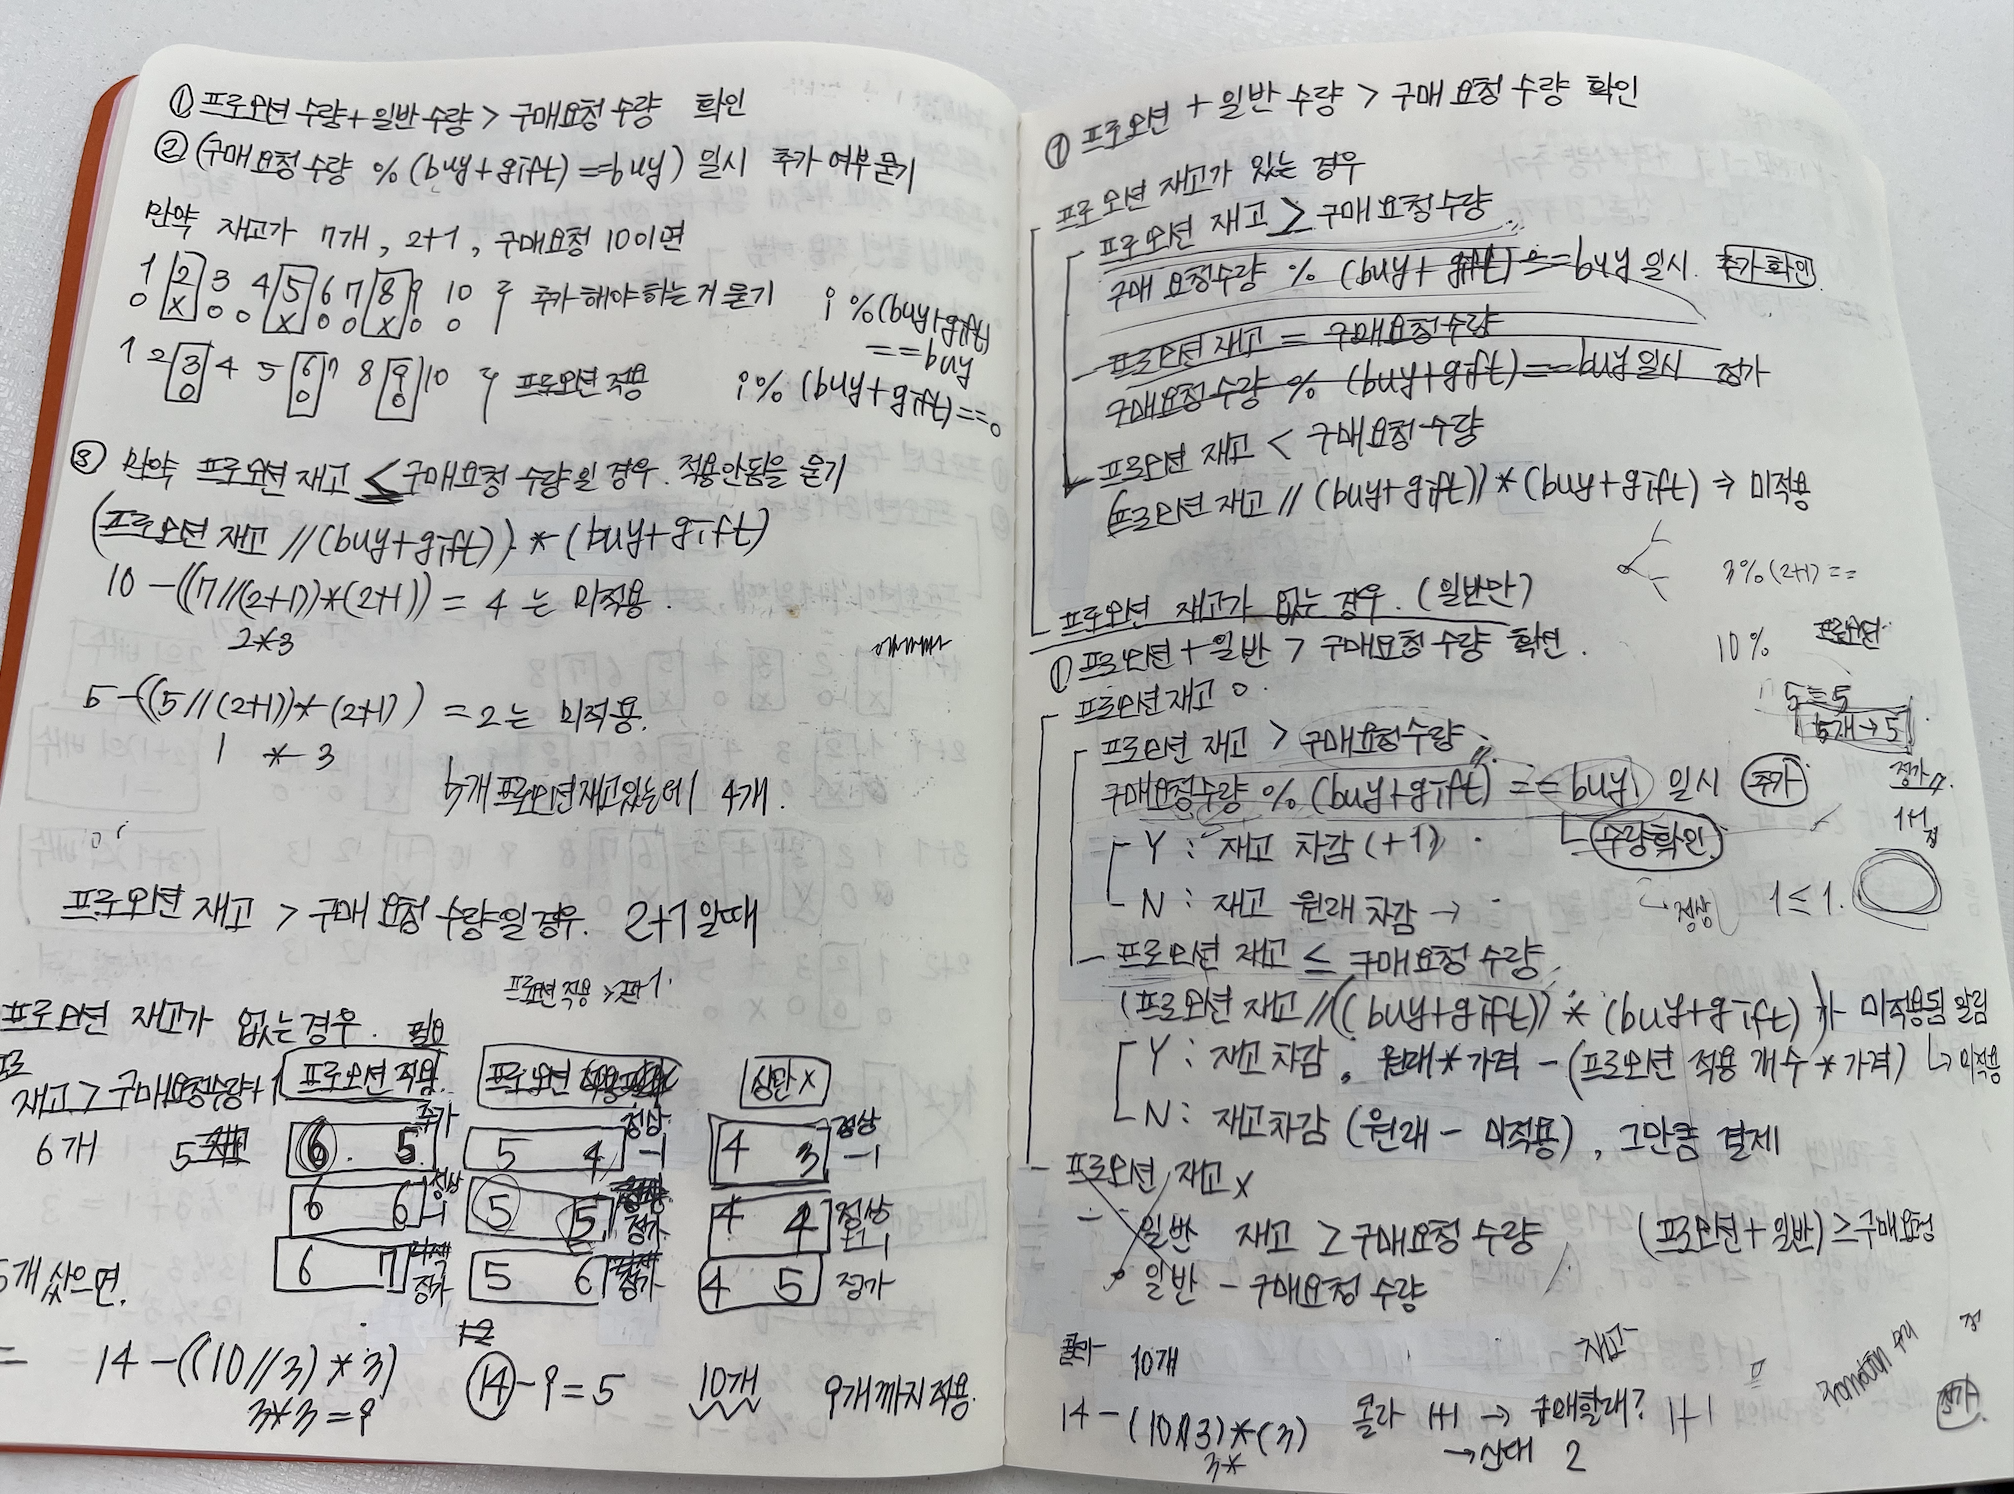 ① 프로모션 수량+일반수량 > 구매요청수량 확인
② (구매요청수량 % (buy+gift) == buy) 일시 추가 여부 묻기
만약 재고가 7개, 2+1, 구매요청 10이면
1 2 3 4 5 6 7 8 9 10 추가해야하는거 묻기 i %(buy+gift)
o x o o x o o x o o ==buy
1 2 3 4 5 6 7 8 9 10 프로모션 적용 i % (buy+gift)==0
o o o
③ 만약 프로모션 재고 ≤ 구매요청 수량일 경우. 적용안됨을 묻기
(프로모션 재고 //(buy+gift)) * (buy+gift)
10 -((7//(2+1))*(2+1)) = 4 는 미적용.
2*3
5 -((5//(2+1))*(2+1)) = 2는 미적용.
1 * 3
개 프로모션재고있는데 4개.
프로모션 재고 > 구매요청 수량일경우. 2+1일때
프로모션적용
프로모션 재고가 없는경우. 필요
재고 > 구매요청수량+1 프로모션 적용. 프로모션 x
6개 5 6 5 추가 5 4 정상 -1 4 3 정상 -1
6 6 정상 -1 5 5 정가 4 4 정상
6 7 정가 5 6 정가 4 5 정가
5개 샀으면.
= 14 -((10//3)*3) 12 14-9=5 10개 9개까지적용.
3*3=9
① 프로모션 + 일반수량 > 구매요청수량 확인
프로모션 재고가 있는 경우
프로모션 재고 ≥ 구매요청수량.
구매요청수량 % (buy+gift) ==buy 일시. 추가확인
프로모션 재고 = 구매요청수량
구매요청수량 % (buy+gift)==buy일시 정가
프로모션 재고 < 구매요청수량
(프로모션 재고 // (buy+gift))*(buy+gift) ⇒ 미적용
3%(2+1) ==
프로모션 재고가 없는 경우. (일반만)
10% 프로모션
① 프로모션+일반 > 구매요청수량 확인.
프로모션재고 o.
5 5
5개→5
프로모션 재고 > 구매요청수량.
구매요청수량 % (buy+gift) == buy 일시 추가
정가
1+1
Y : 재고 차감 (+1) 수량확인
N : 재고 원래차감 → 정상 1≤1.
프로모션 재고 ≤ 구매요청수량.
(프로모션 재고 //((buy+gift)) * (buy+gift) 가 미적용됨 알림
Y : 재고차감. 원래*가격 -(프로모션 적용 개수*가격) 미적용
N : 재고차감 (원래 - 미적용), 그만큼 결제
프로모션 재고 x
일반 재고 ≥ 구매요청수량 (프로모션+일반)≥구매요청
일반 - 구매요청수량
콜라 10개 재고
14 -(10//3)*(3) 콜라 1+1 → 구매할래? 1+1 promotion
3* → 산대 2 정가